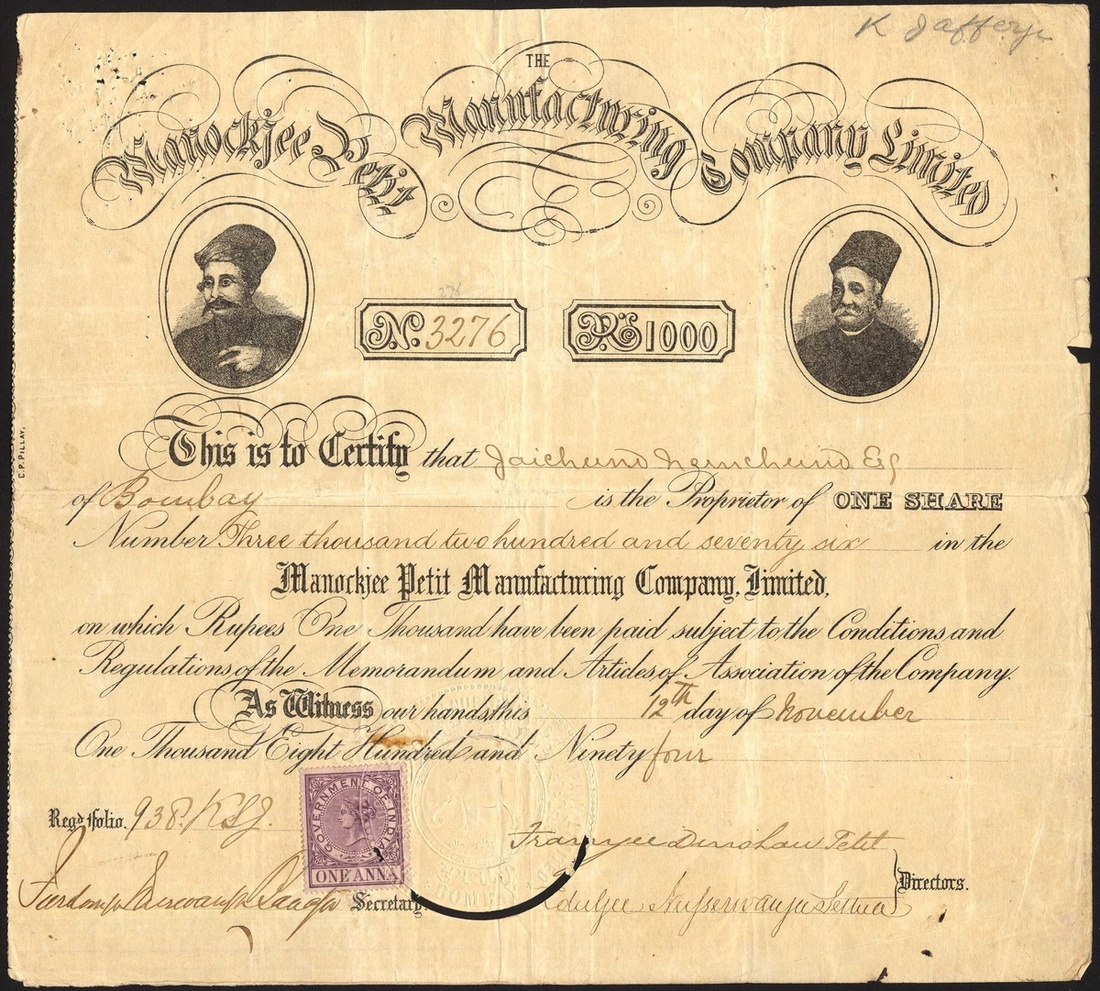 K Jafferji
THE
Manockjee Petit Manufacturing Company Limited
No. 3276
Rs 1000
C. P. PILLAY.
This is to Certify that Jaichund Nemchund Esq
of Bombay is the Proprietor of ONE SHARE
Number Three thousand two hundred and seventy six in the
Manockjee Petit Manufacturing Company, Limited,
on which Rupees One Thousand have been paid subject to the Conditions and
Regulations of the Memorandum and Articles of Association of the Company.
As Witness our hands, this 12th day of November
One Thousand Eight Hundred and Ninety four
GOVERNMENT OF INDIA
ONE ANNA
Regd folio. 938.
Framjee Dinshaw Petit
Secretary
Directors.